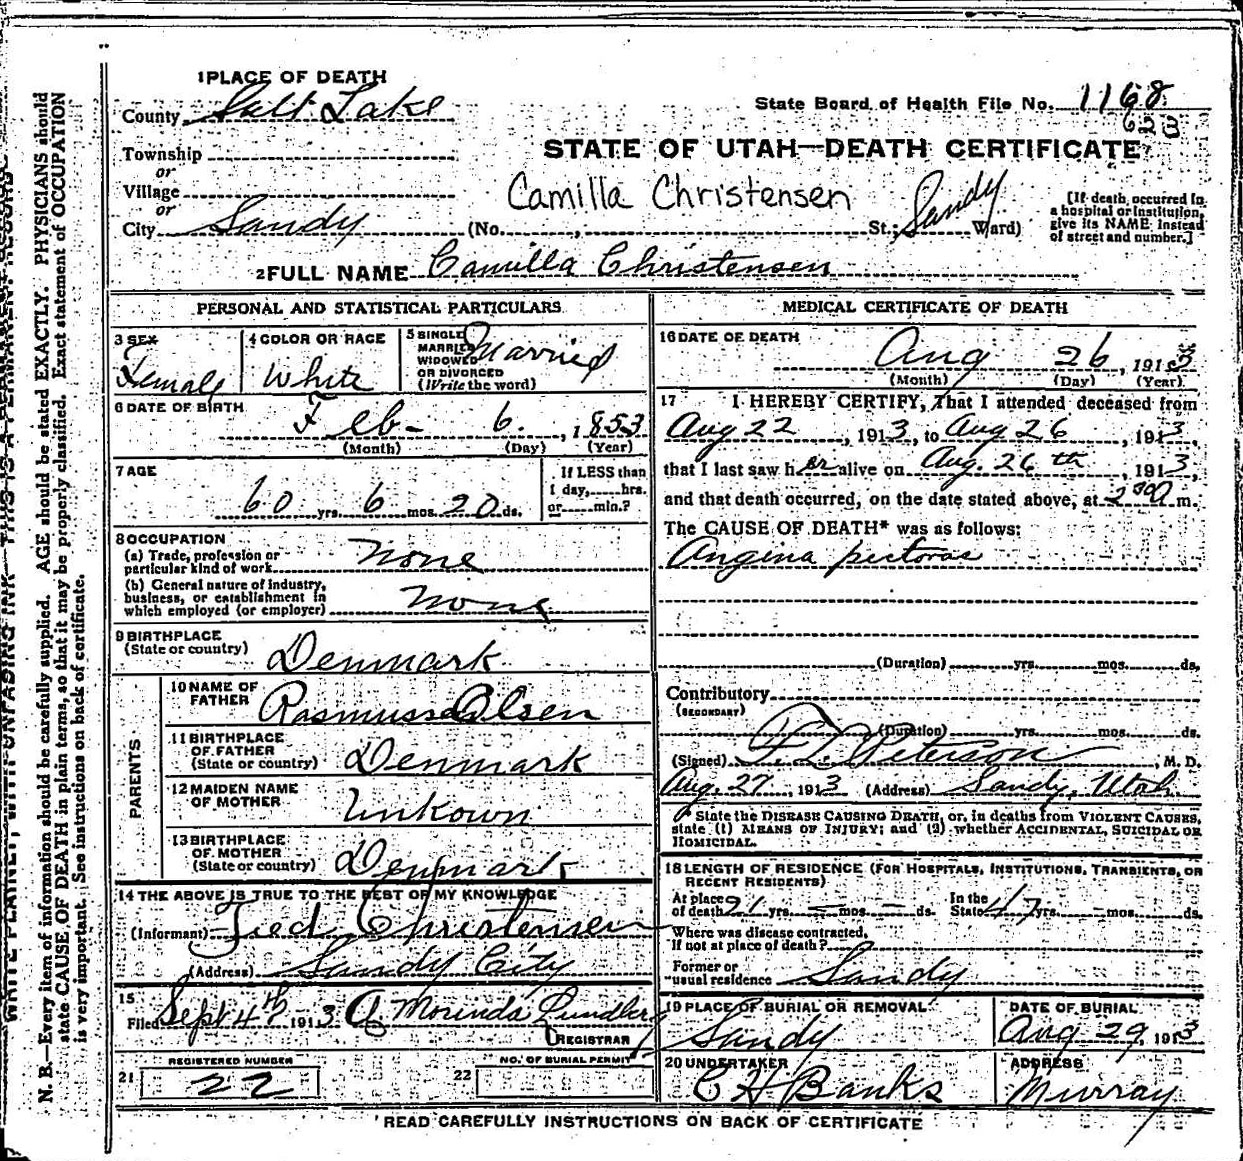 1 PLACE OF DEATH
County Salt Lake
State Board of Health File No. 1168
Township
or
Village
or
City Sandy
STATE OF UTAH—DEATH CERTIFICATE
Camilla Christensen
(No. , St.; Sandy Ward)
[If death occurred in
a hospital or institution,
give its NAME instead
of street and number.]
2 FULL NAME Camilla Christensen
PERSONAL AND STATISTICAL PARTICULARS
3 SEX
Female
4 COLOR OR RACE
White
5 SINGLE
MARRIED
WIDOWED
OR DIVORCED
(Write the word)
Married
6 DATE OF BIRTH
Feb- 6. , 1853
(Month) (Day) (Year)
7 AGE
60 yrs. 6 mos. 20 ds.
If LESS than
1 day, hrs.
or min.?
8 OCCUPATION
(a) Trade, profession or
particular kind of work None
(b) General nature of industry,
business, or establishment in
which employed (or employer) None
9 BIRTHPLACE
(State or country) Denmark
PARENTS
10 NAME OF
FATHER Rasmus Olsen
11 BIRTHPLACE
OF FATHER
(State or country) Denmark
12 MAIDEN NAME
OF MOTHER Unkown
13 BIRTHPLACE
OF MOTHER
(State or country) Denmark
14 THE ABOVE IS TRUE TO THE BEST OF MY KNOWLEDGE
(Informant) Fred Christensen
(Address) Sandy City
15
Filed Sept 4th 1913 A. Morinda Lundberg
REGISTRAR
REGISTERED NUMBER
21 22
NO. OF BURIAL PERMIT
22
MEDICAL CERTIFICATE OF DEATH
16 DATE OF DEATH
Aug 26 , 1913
(Month) (Day) (Year)
17 I HEREBY CERTIFY, That I attended deceased from
Aug 22 , 1913, to Aug 26 , 1913,
that I last saw her alive on Aug. 26th , 1913,
and that death occurred, on the date stated above, at 2 00 a m.
The CAUSE OF DEATH* was as follows:
Angina pectoras
(Duration) yrs. mos. ds.
Contributory
(SECONDARY)
(Duration) yrs. mos. ds.
(Signed) Peterson , M. D.
Aug. 27 , 1913 (Address) Sandy, Utah
* State the DISEASE CAUSING DEATH, or, in deaths from VIOLENT CAUSES,
state (1) MEANS OF INJURY; and (2) whether ACCIDENTAL, SUICIDAL OR
HOMICIDAL.
18 LENGTH OF RESIDENCE (FOR HOSPITALS, INSTITUTIONS, TRANSIENTS, OR
RECENT RESIDENTS)
At place
of death 21 yrs. – mos. – ds.
In the
State 47 yrs. – mos. ds.
Where was disease contracted,
if not at place of death?
Former or
usual residence Sandy
19 PLACE OF BURIAL OR REMOVAL
Sandy
DATE OF BURIAL
Aug 29, 1913
20 UNDERTAKER
C H Banks
ADDRESS
Murray
*READ CAREFULLY INSTRUCTIONS ON BACK OF CERTIFICATE
N. B.—Every item of information should be carefully supplied. AGE should be stated EXACTLY. PHYSICIANS should
state CAUSE OF DEATH in plain terms, so that it may be properly classified. Exact statement of OCCUPATION
is very important. See instructions on back of certificate.